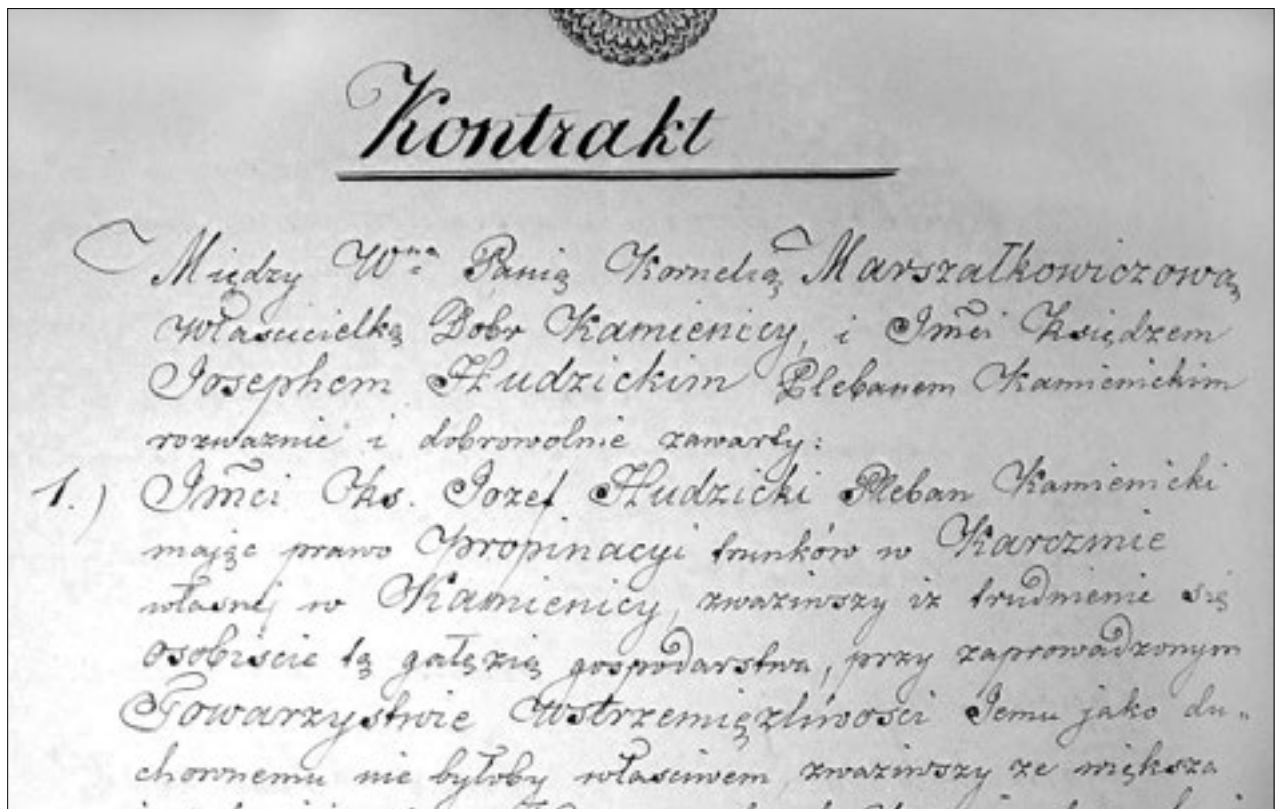 Kontrakt
Między Wną Panią Kornelią Marszałkowiczową
właścicielką Dobr Kamienicy, i Jmci Księdzem
Josephem Hudzickim Plebanem Kamienickim
rozważnie i dobrowolnie zawarty:
1.) Jmci Ks. Jozef Hudzicki Pleban Kamienicki
mając prawo Propinacyi trunków w Karczmie
własnej w Kamienicy, zważiwszy iż trudnienie się
osobiscie tą gałęzią gospodarstwa, przy zaprowadzonym
Towarzystwie Wstrzemięzliwosci Jemu jako du„
chownemu nie byłoby własciwem, zważiwszy ze większa